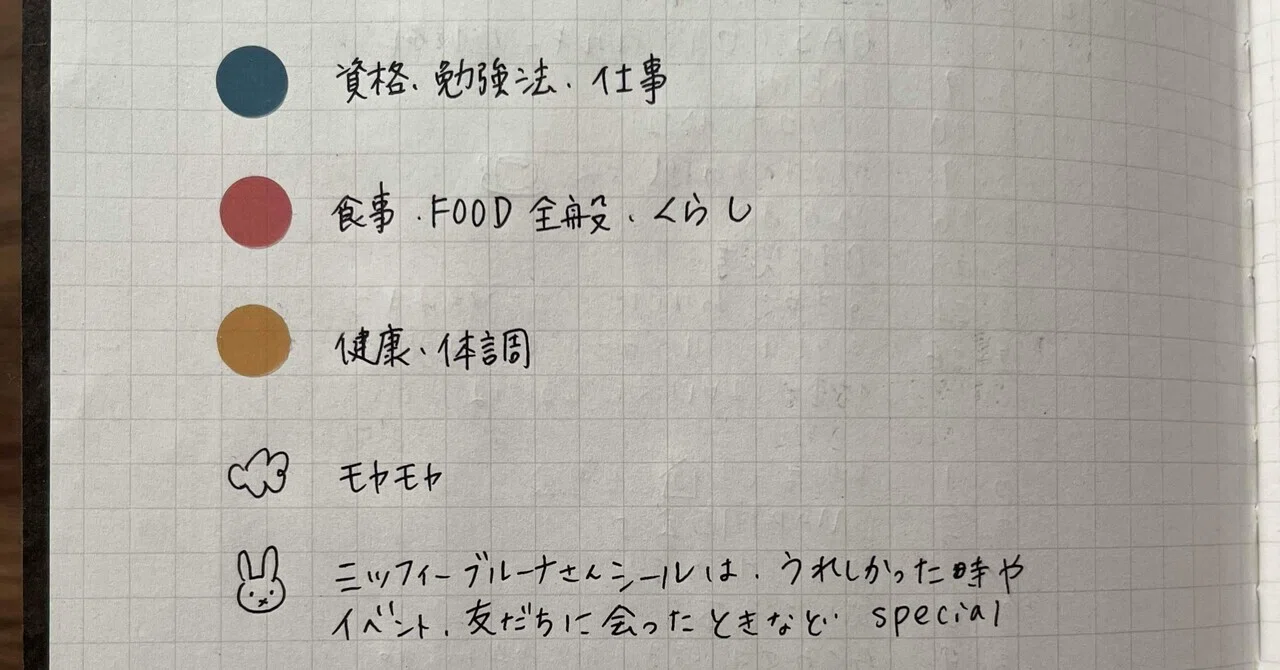 資格、勉強法、仕事
食事、FOOD 全般、くらし
健康、体調
モヤモヤ
ミッフィーブルーナさんシールは、うれしかった時や
イベント、友だちに会ったときなど special